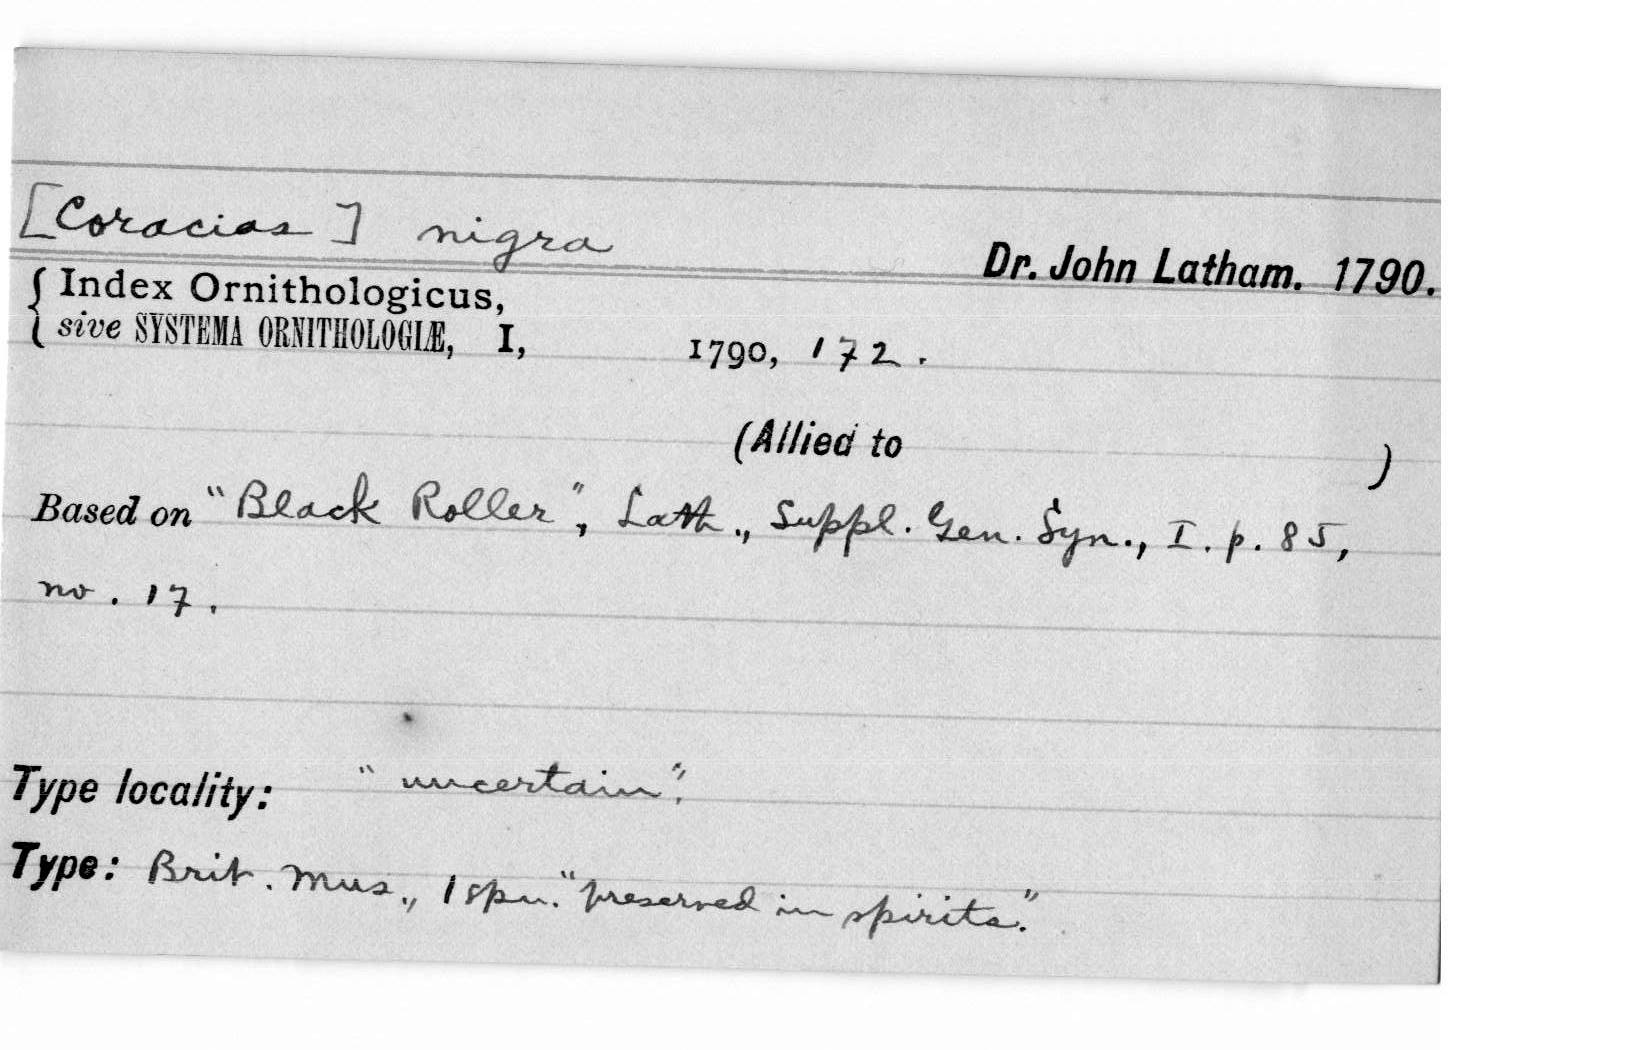 [Coracias] nigra
Dr. John Latham. 1790.
{ Index Ornithologicus,
sive SYSTEMA ORNITHOLOGIÆ, I, 1790, 172.
(Allied to )
Based on "Black Roller", Lath., Suppl. Gen. Syn., I. p. 85,
no. 17.
Type locality: "uncertain".
Type: Brit. Mus., 1 spn. "preserved in spirits."